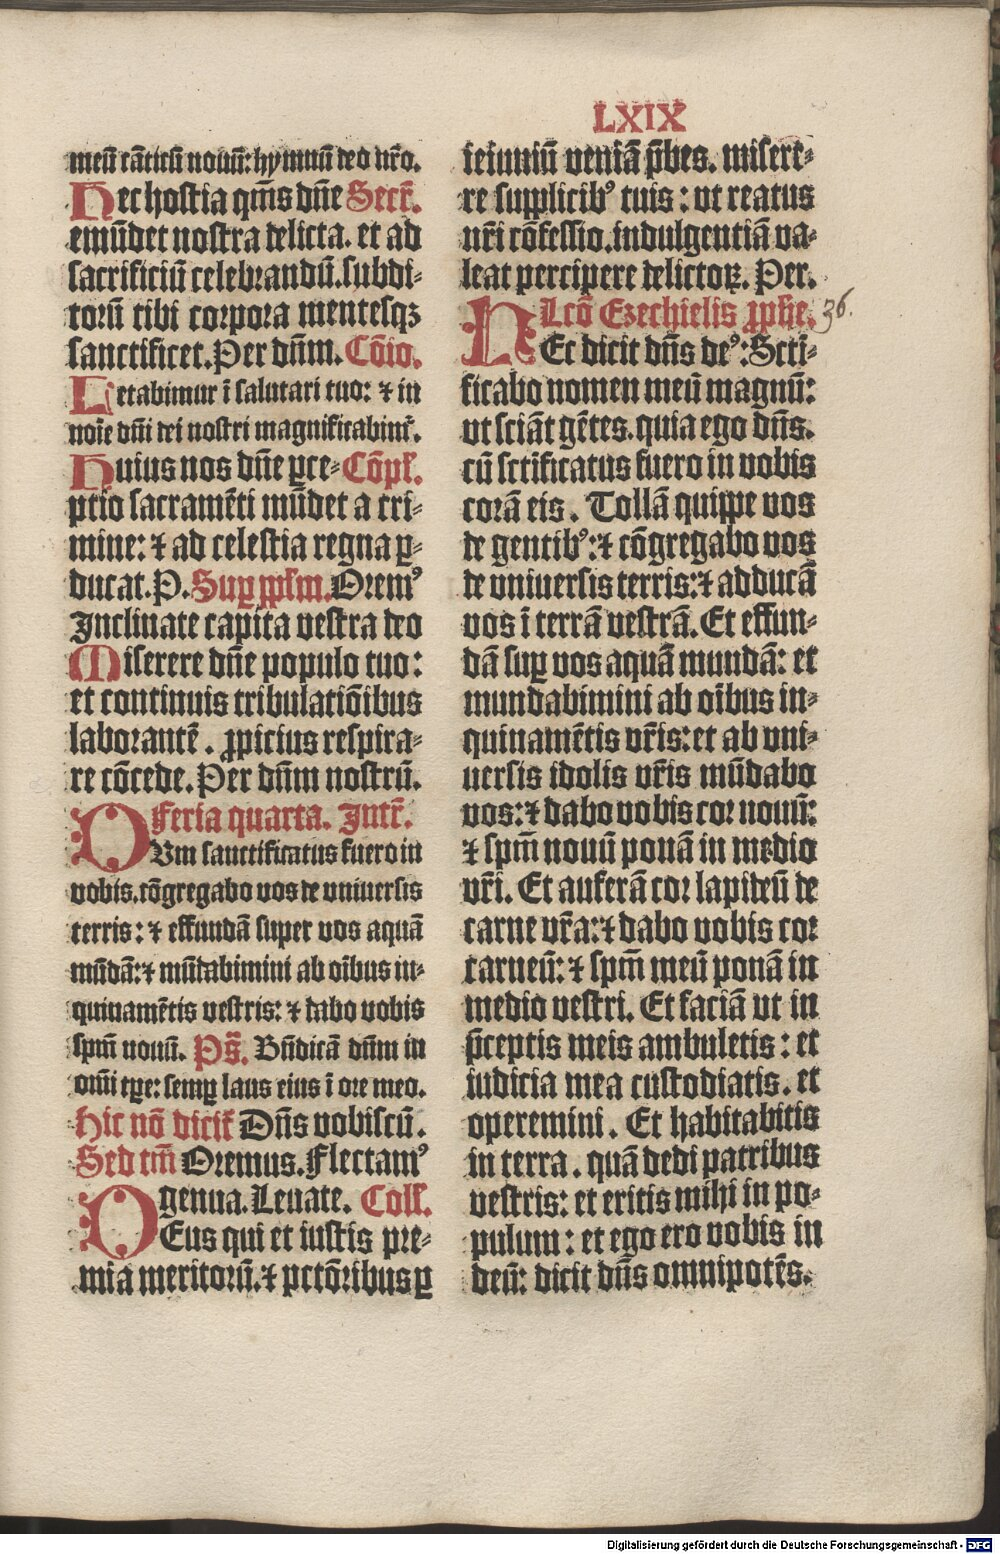 LXIX
meū cāticū nouū: hymnū deo nr̄o.
Hec hostia qm̄s dn̄e Secr̄.
emūdet nostra delicta. et ad
sacrificiū celebrandū. subdi⸗
torū tibi corpora mentesqꝫ
sanctificet. Per dn̄m. Cōio.
Letabimur ī salutari tuo: ⁊ in
noīe dn̄i dei nostri magnificabim̄.
Huius nos dn̄e ꝑce⸗ Cōpl̄.
ptio sacramēti mūdet a cri⸗
mine: ⁊ ad celestia regna ꝑ⸗
ducat. P. Suꝑ pplm̄. Oremꝰ
Inclinate capita vestra deo
Miserere dn̄e populo tuo:
et continuis tribulatiōibus
laborantē. ꝓpicius respira⸗
re cōcede. Per dn̄m nostrū.
Feria quarta. Intr̄.
Dvm sanctificatus fuero in
vobis. cōgregabo vos de vniuersis
terris: ⁊ effundā super vos aquā
mūdā: ⁊ mūdabimini ab oībus in⸗
quinamētis vestris: ⁊ dabo vobis
spm̄ nouū. Ps̄. Bn̄dicā dn̄m in
om̄i tꝑe: semꝑ laus eius ī ore meo.
Hic nō dicit̄ Dn̄s vobiscū.
Sed tm̄ Oremus. Flectamꝰ
genua. Leuate. Coll̄.
Deus qui et iustis pre⸗
mia meritorū. ⁊ pctōribus ꝑ
ieiuniū veniā p̄bes. misere⸗
re supplicibꝰ tuis: vt reatus
nr̄i cōfessio. indulgentiā va⸗
leat percipere delictoꝝ. Per.
Lcō Ezechielis ꝓphe. 36.
Hec dicit dn̄s deꝰ: Sctī⸗
ficabo nomen meū magnū:
vt sciāt gētes. quia ego dn̄s.
cū sctificatus fuero in vobis
corā eis. Tollā quippe vos
de gentibꝰ: ⁊ cōgregabo vos
de vniuersis terris: ⁊ adducā
vos ī terrā vestrā. Et effun⸗
dā suꝑ vos aquā mundā: et
mundabimini ab oībus in⸗
quinamētis vr̄is: et ab vni⸗
uersis idolis vr̄is mūdabo
vos: ⁊ dabo vobis cor nouū:
⁊ spm̄ nouū ponā in medio
vr̄i. Et auferā cor lapideū de
carne vr̄a: ⁊ dabo vobis cor
carneū: ⁊ spm̄ meū ponā in
medio vestri. Et faciā vt in
p̄ceptis meis ambuletis: et
iudicia mea custodiatis. et
operemini. Et habitabitis
in terra. quā dedi patribus
vestris: et eritis mihi in po⸗
pulum: et ego ero vobis in
deū: dicit dn̄s omnipotēs.
Digitalisierung gefördert durch die Deutsche Forschungsgemeinschaft - DFG